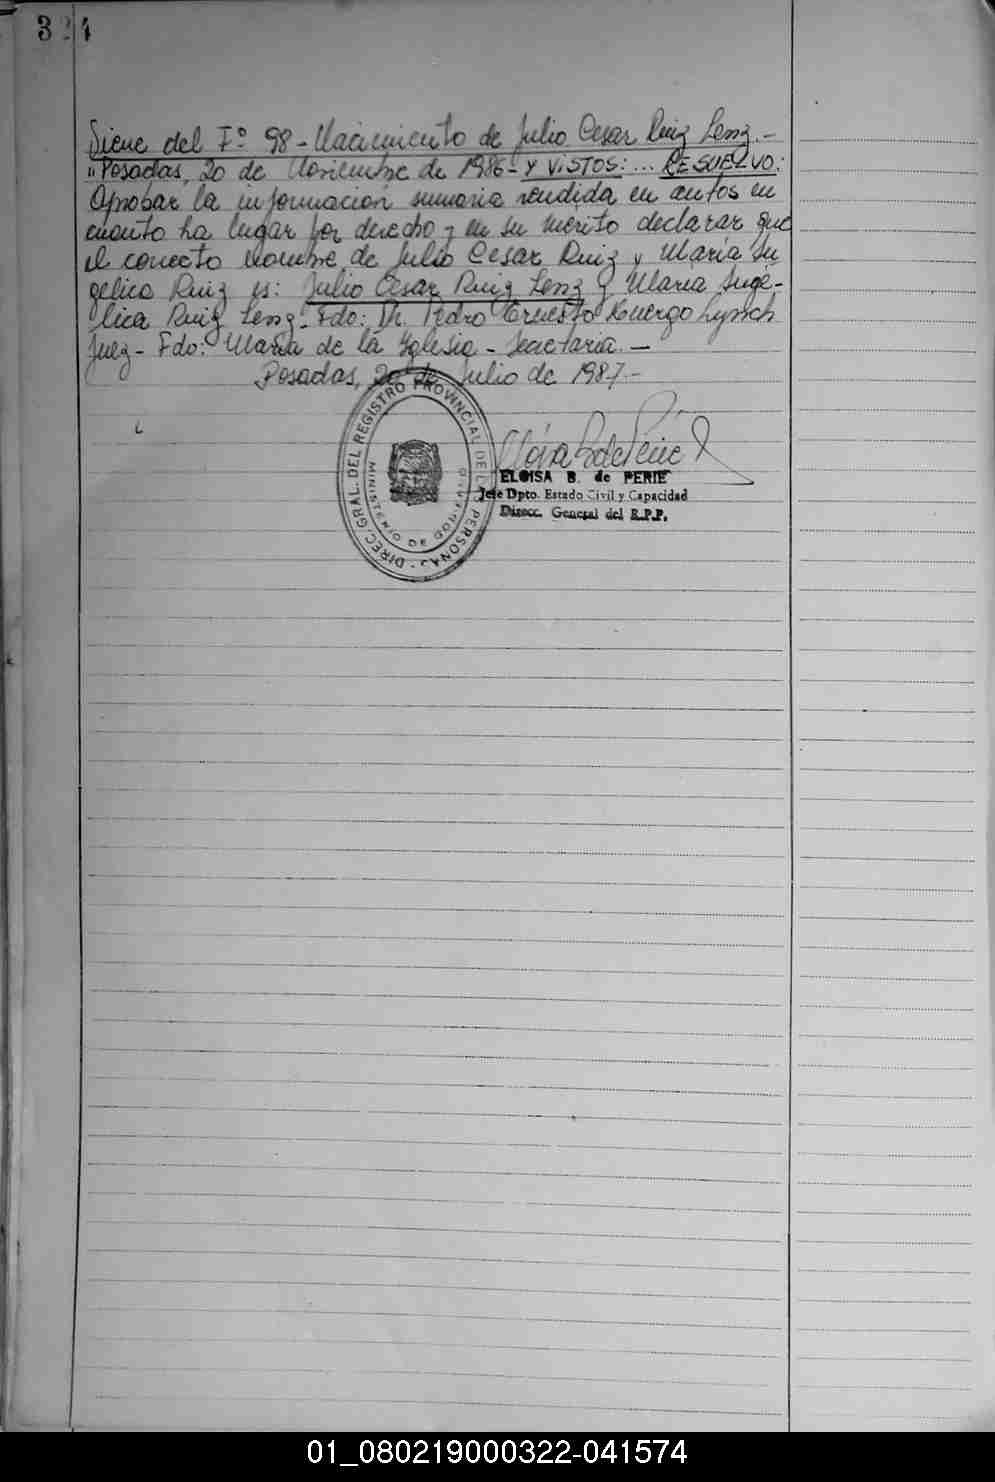 324
Viene del Fº 98 - Nacimiento de Julio Cesar Ruiz Lenz.-
"Posadas, 20 de Noviembre de 1986- Y VISTOS: ... RESUELVO:
Aprobar la información sumaria rendida en autos en
cuanto ha lugar por derecho y en su mérito declarar que
el correcto nombre de Julio Cesar Ruiz y María An
gélica Ruiz es: Julio Cesar Ruiz Lenz y Maria Angé-
lica Ruiz Lenz. Fdo: Dr. Pedro Ernesto Cuergo Lynch
Juez- Fdo: Maria de la Yglesia - Secretaria.-
Posadas, 20 de Julio de 1987.-
DIREC. GRAL. DEL REGISTRO PROVINCIAL DE LAS PERSONAS
MINISTERIO DE GOBIERNO
ELOISA B. de PERIE
Jefe Dpto. Estado Civil y Capacidad
Direcc. General del R.P.P.
01_080219000322-041574